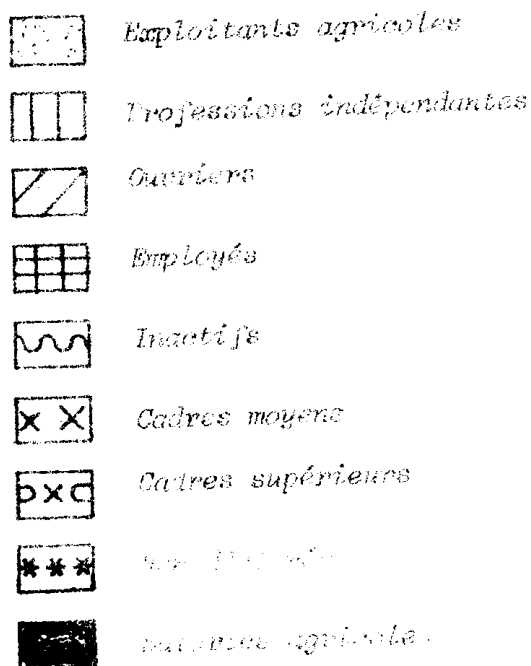 Exploitants agricoles
Professions indépendantes
Ouvriers
Employés
Inactifs
Cadres moyens
Cadres supérieurs
agricoles